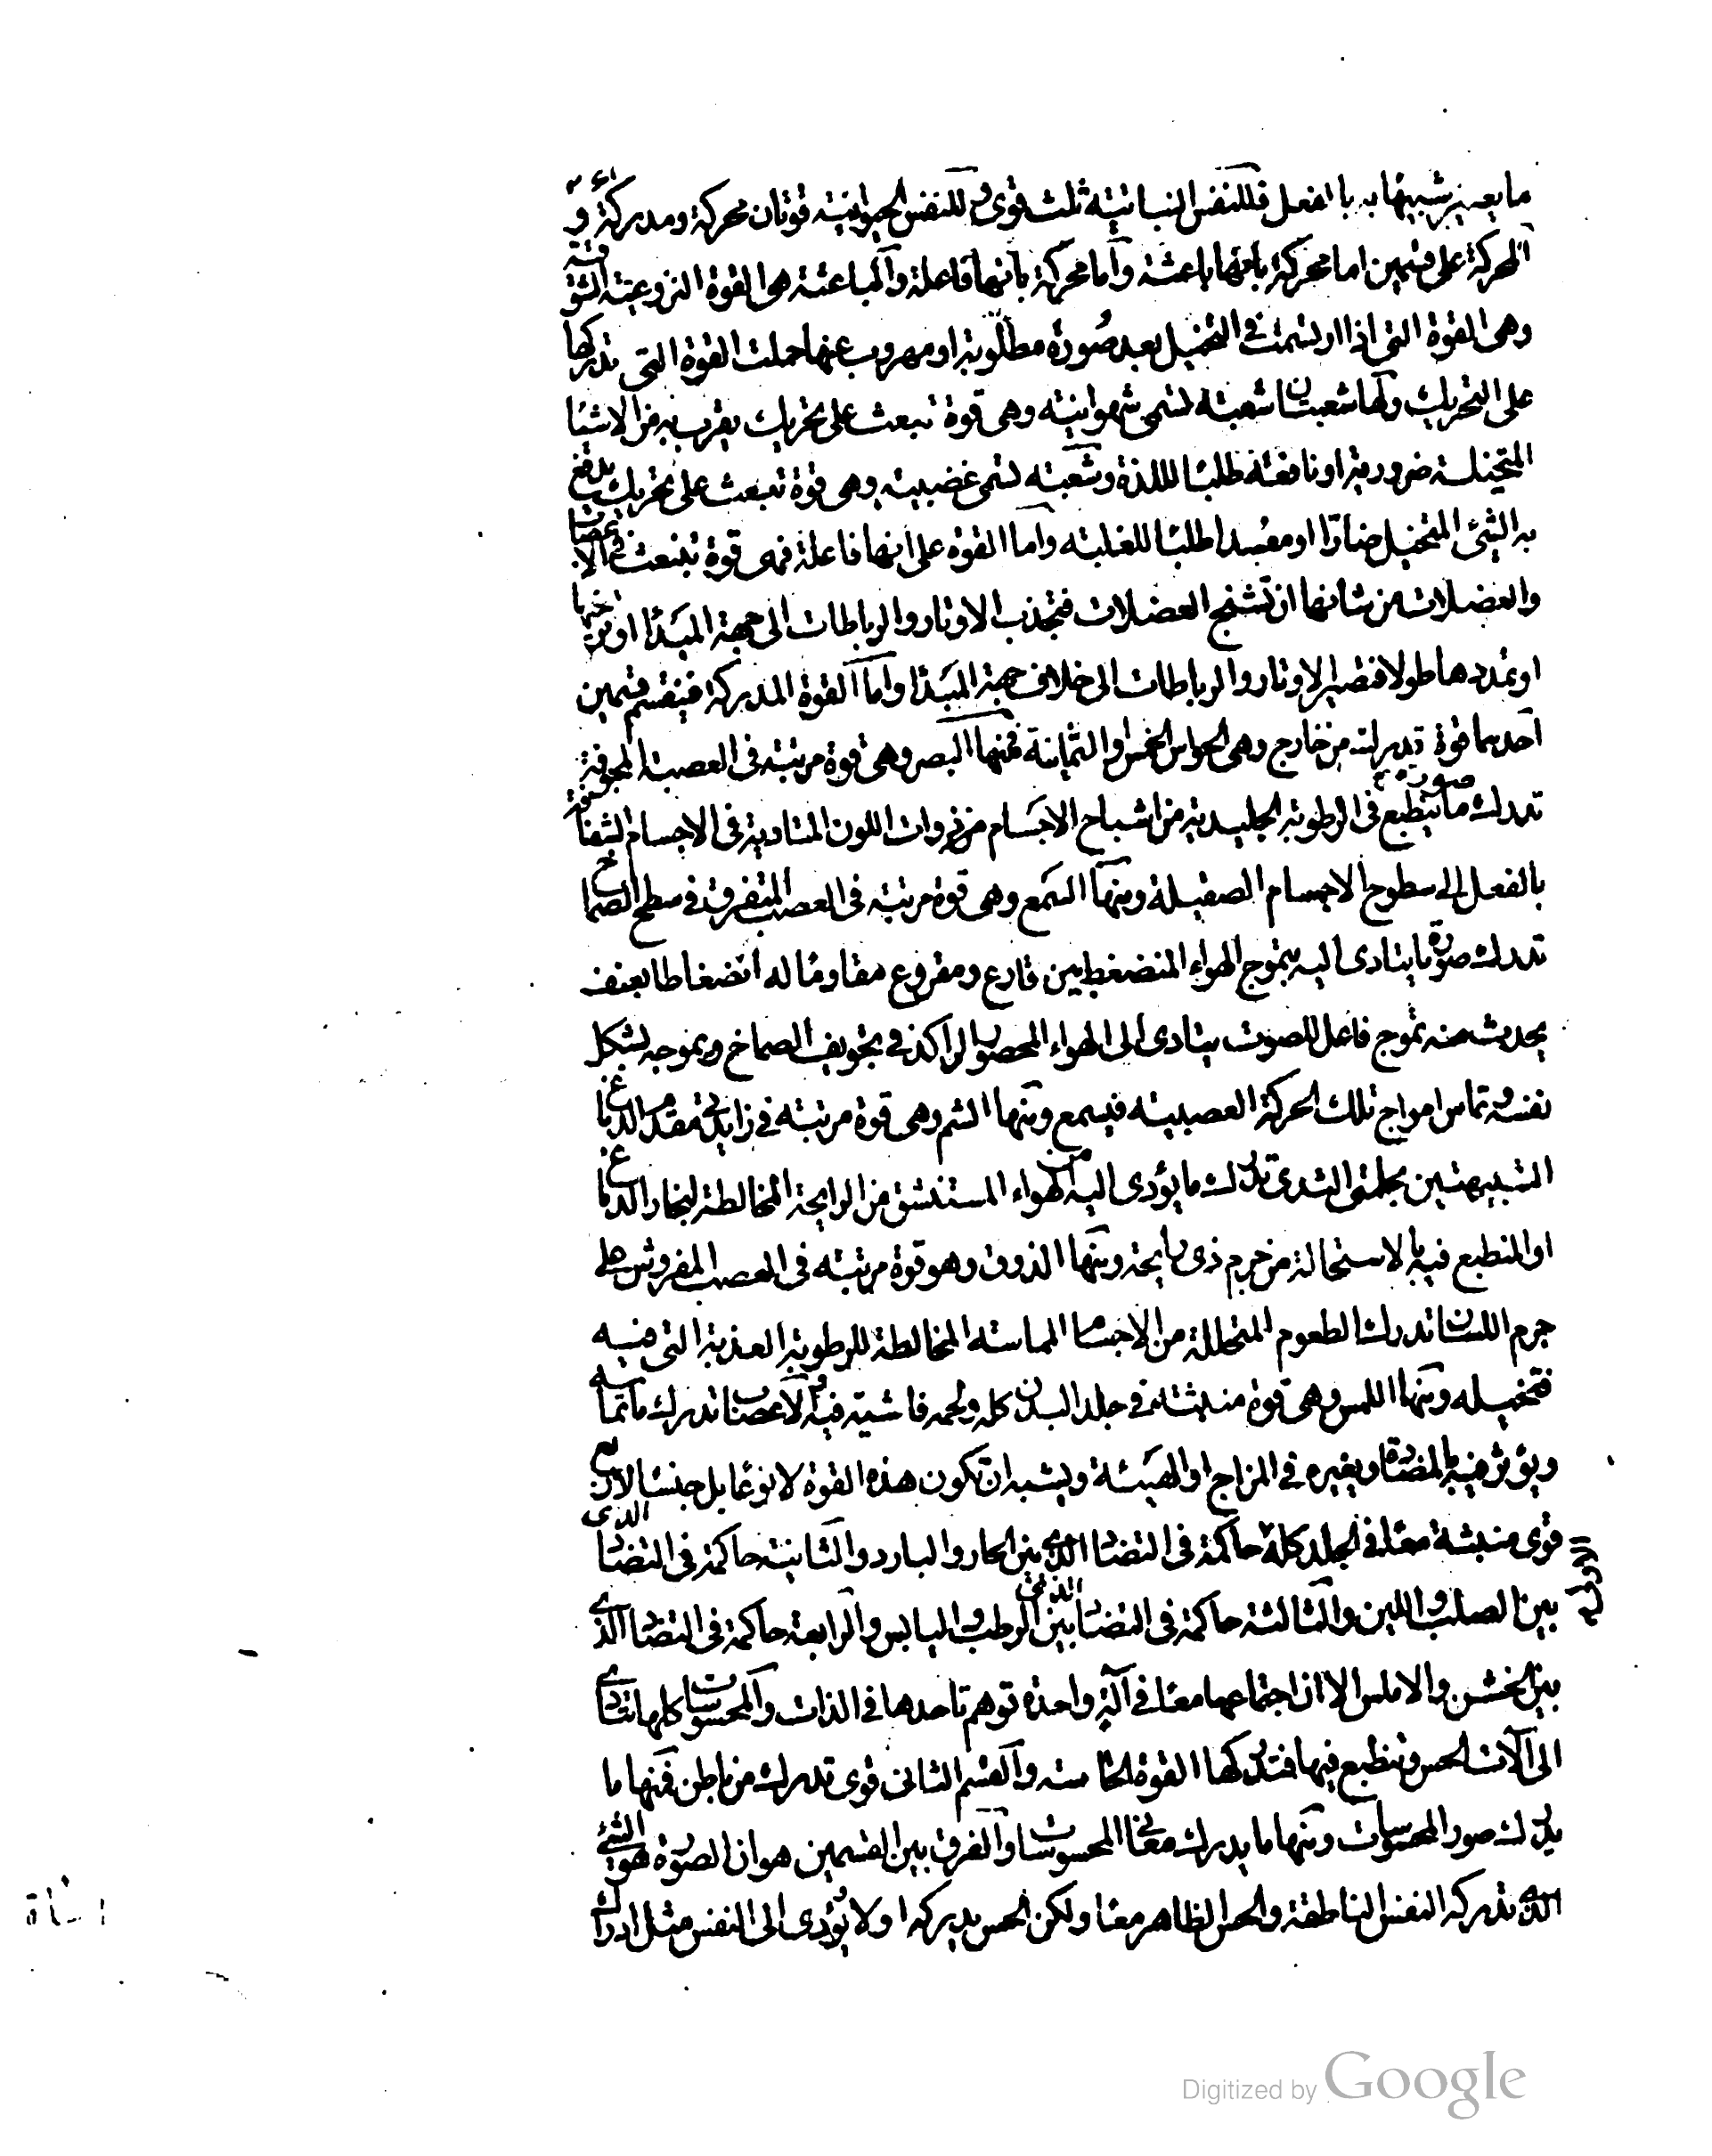 ما يصير شبيها به بالفعل فللنفس النباتية ثلث قوى وللنفس الحيوانية قوتان محركة ومدركة و
المحركة على قسمين اما محركة بانها باعثة واما محركة بانها فاعلة والباعثة هى القوة النزوعية الشوقية
وهى القوة التى اذا ارتسمت فى التخيل بعد صورة مطلوبة او مهروب عنها حملت القوة التى تدركها
على التحريك ولها شعبتان شعبة تسمى شهوانية وهى قوة تبعث على تحريك يقرب به من الاشيا
المتخيلة ضرورية او نافعة طلبا للذة وشعبة تسمى غضبية وهى قوة تبعث على تحريك يدفع
به الشئ المتخيل ضارا او مفسدا طلبا للغلبة واما القوة على انها فاعلة فهى قوة تنبعث فى الاعصاب
والعضلات من شانها ان تشنج العضلات فتجذب الاوتار والرباطات الى جهة المبدأ او ترخيها
او تمددها طولا فتصير الاوتار والرباطات الى خلاف جهة المبدأ واما القوة المدركة فينقسم قسمين
احدهما قوة تدرك من خارج وهى الحواس الخمس او الثمانية فمنها البصر وهى قوة مرتبة فى العصبة المجوفة
تدرك صورة ما ينطبع فى الرطوبة الجليدية من اشباح الاجسام من ذوات اللون المتادية فى الاجسام الشفافة
بالفعل الى سطوح الاجسام الصقيلة ومنها السمع وهى قوة مرتبة فى العصب المتفرق فى سطح الصماخ
تدرك صورة ما يتادى اليه بتموج الهواء المنضغط بين قارع ومقروع مقاوما له انضغاطا بعنف
يحدث منه تموج فاعل للصوت يتادى الى الهواء المحصور الراكد فى تجويف الصماخ ويموجه بشكل
نفسه وتماس امواج تلك الحركة العصبية فيسمع ومنها الشم وهى قوة مرتبة فى زايدتى مقدم الدماغ
الشبيهتين بحلمتى الثدى تدرك ما يؤدى اليه من الهواء المستنشق من الرايحة المخالطة لبخار الدماغ
او المنطبع فيه بالاستحالة من جرم ذى رايحة ومنها الذوق وهو قوة مرتبة فى العصب المفروش على
جرم اللسان تدرك الطعوم المتحللة من الاجسام المماسة المخالطة للرطوبة العذبة التى فيه
فتحيله ومنها اللمس وهى قوة منبثة فى جلد البدن كله ولحمه فاشية فيه والاعصاب تدرك ما تماسه
ويؤثر فيه بالمضادة ويغيره فى المزاج او الهيئة ويشبه ان تكون هذه القوة لا نوعا بل جنسا لاربع
قوى منبثة معا فى الجلد كله حاكمة فى التضاد الذى بين الحار والبارد والثانية حاكمة فى التضاد الذى
بين الصلب واللين والثالثة حاكمة فى التضاد الذى بين الرطب واليابس والرابعة حاكمة فى التضاد الذى
بين الخشن والاملس الا ان اجتماعها معا فى آلة واحدة توهم تاحدها فى الذات والمحسوسات كلها تتادى
الى آلات الحس وتنطبع فيها فتدركها القوة الحاسة والقسم الثانى قوى تدرك من باطن فمنها ما
يدرك صور المحسوسات ومنها ما يدرك معانى المحسوسات والفرق بين القسمين هو ان الصورة هو الشئ
الذى تدركه النفس الناطقة والحس الظاهر معا ولكن الحس يدركه اولا ويؤدى الى النفس مثل ادراك
Digitized by Google